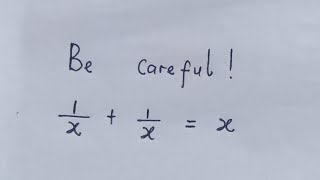 Be careful!
1/x + 1/x = x